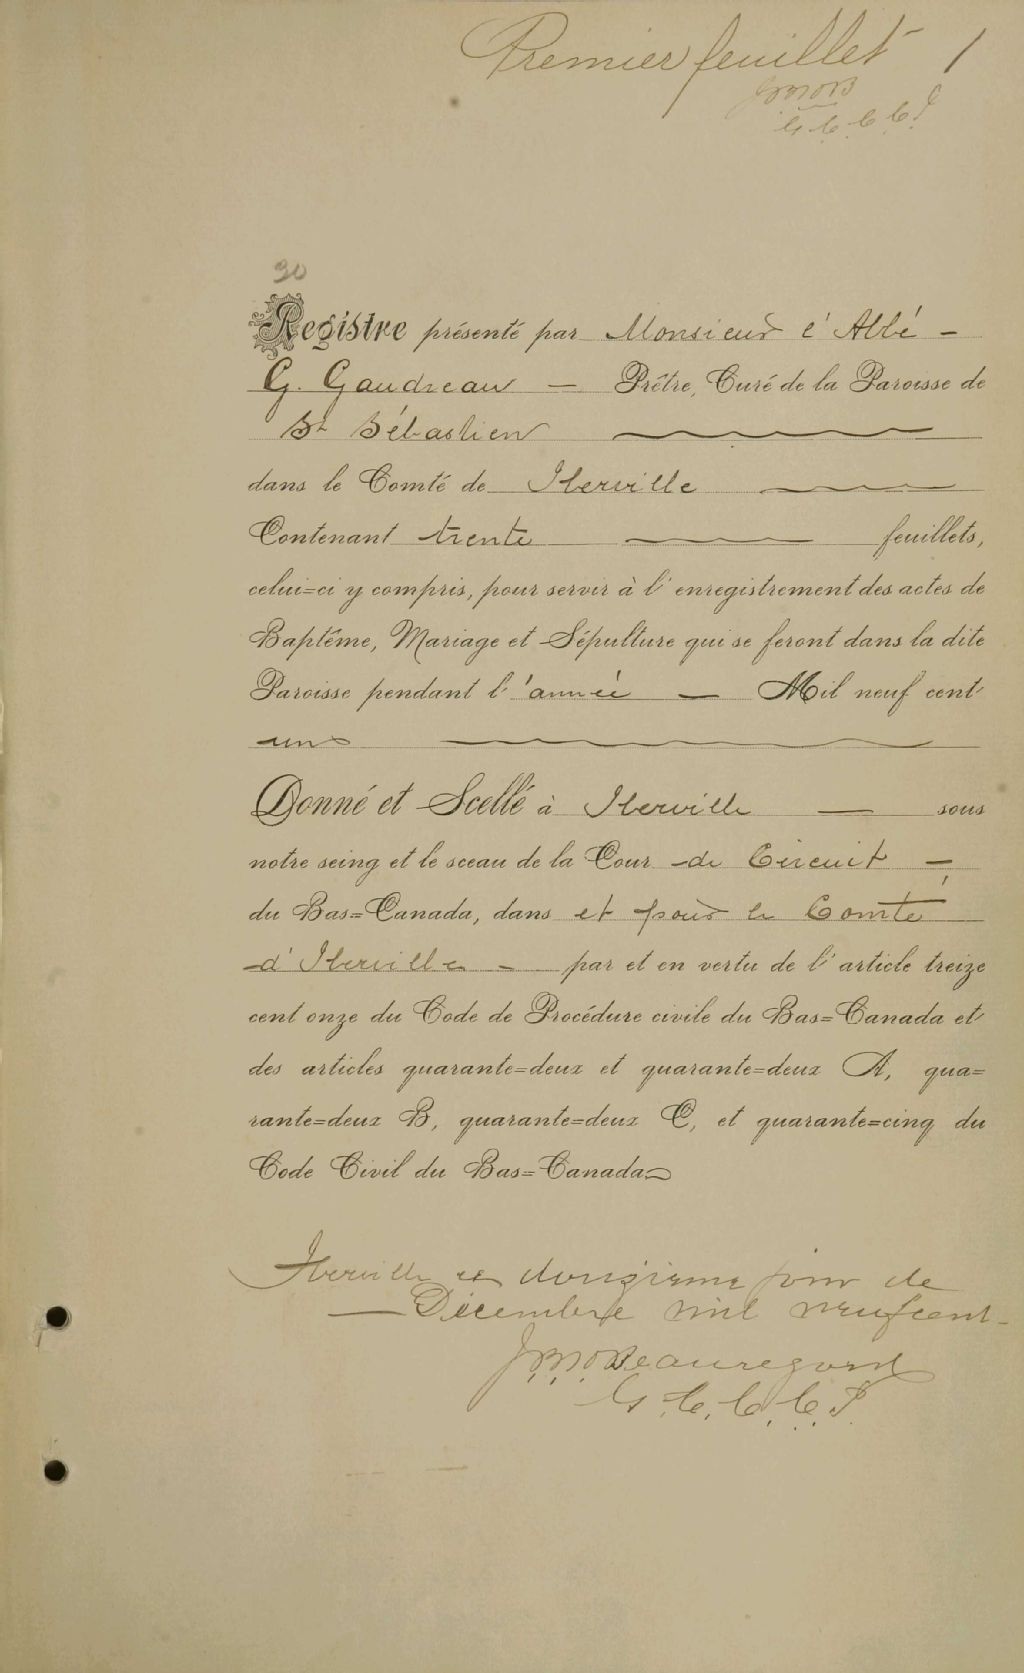 Premier feuillet 1
JBMOB
G. C. C. C. I
30
Registre présenté par Monsieur l'Abbé -
G. Gaudreau — Prêtre, Curé de la Paroisse de
St Sébastien
dans le Comté de Iberville
Contenant trente feuillets,
celui=ci y compris, pour servir à l'enregistrement des actes de
Baptême, Mariage et Sépulture qui se feront dans la dite
Paroisse pendant l'année — Mil neuf cent
un
Donné et Scellé à Iberville — sous
notre seing et le sceau de la Cour de Circuit —
du Bas=Canada, dans et pour le Comté
d'Iberville - par et en vertu de l'article treize
cent onze du Code de Procédure civile du Bas=Canada et
des articles quarante=deux et quarante=deux A, qua=
rante=deux B, quarante=deux C, et quarante=cinq du
Code Civil du Bas=Canada
Iberville ce douzieme jour de
— Décembre mil neuf cent -
Beauregard
G. C. C. C. I.